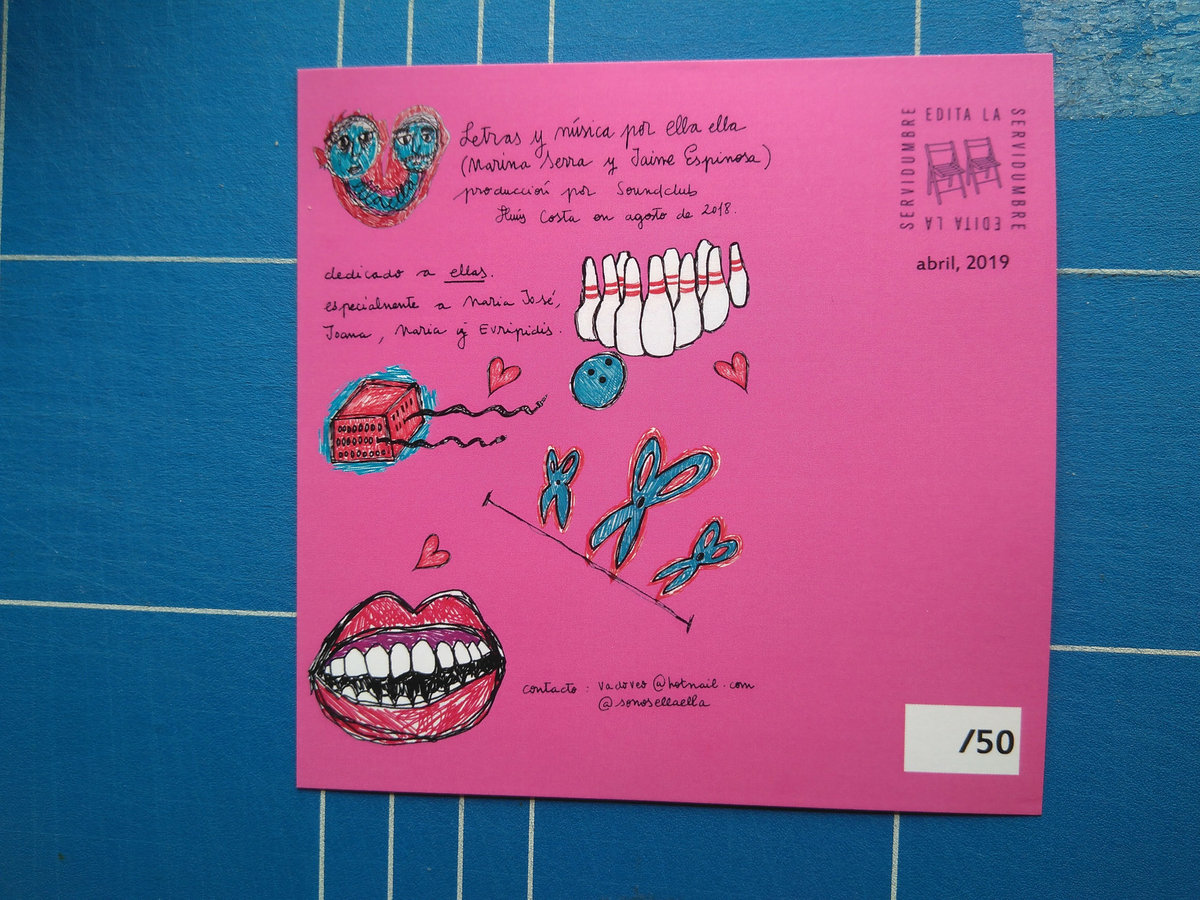 Letras y música por ella ella
(Marina Serra y Jaime Espinosa)
producción por Soundclub
Lluís Costa en agosto de 2018.
dedicado a ellas.
especialmente a Maria José,
Joana, Maria y Evripidis.
contacto: vadoveo@hotmail.com
@somosellaella
EDITA LA
SERVIDUMBRE
EDITA LA
SERVIDUMBRE
abril, 2019
/50